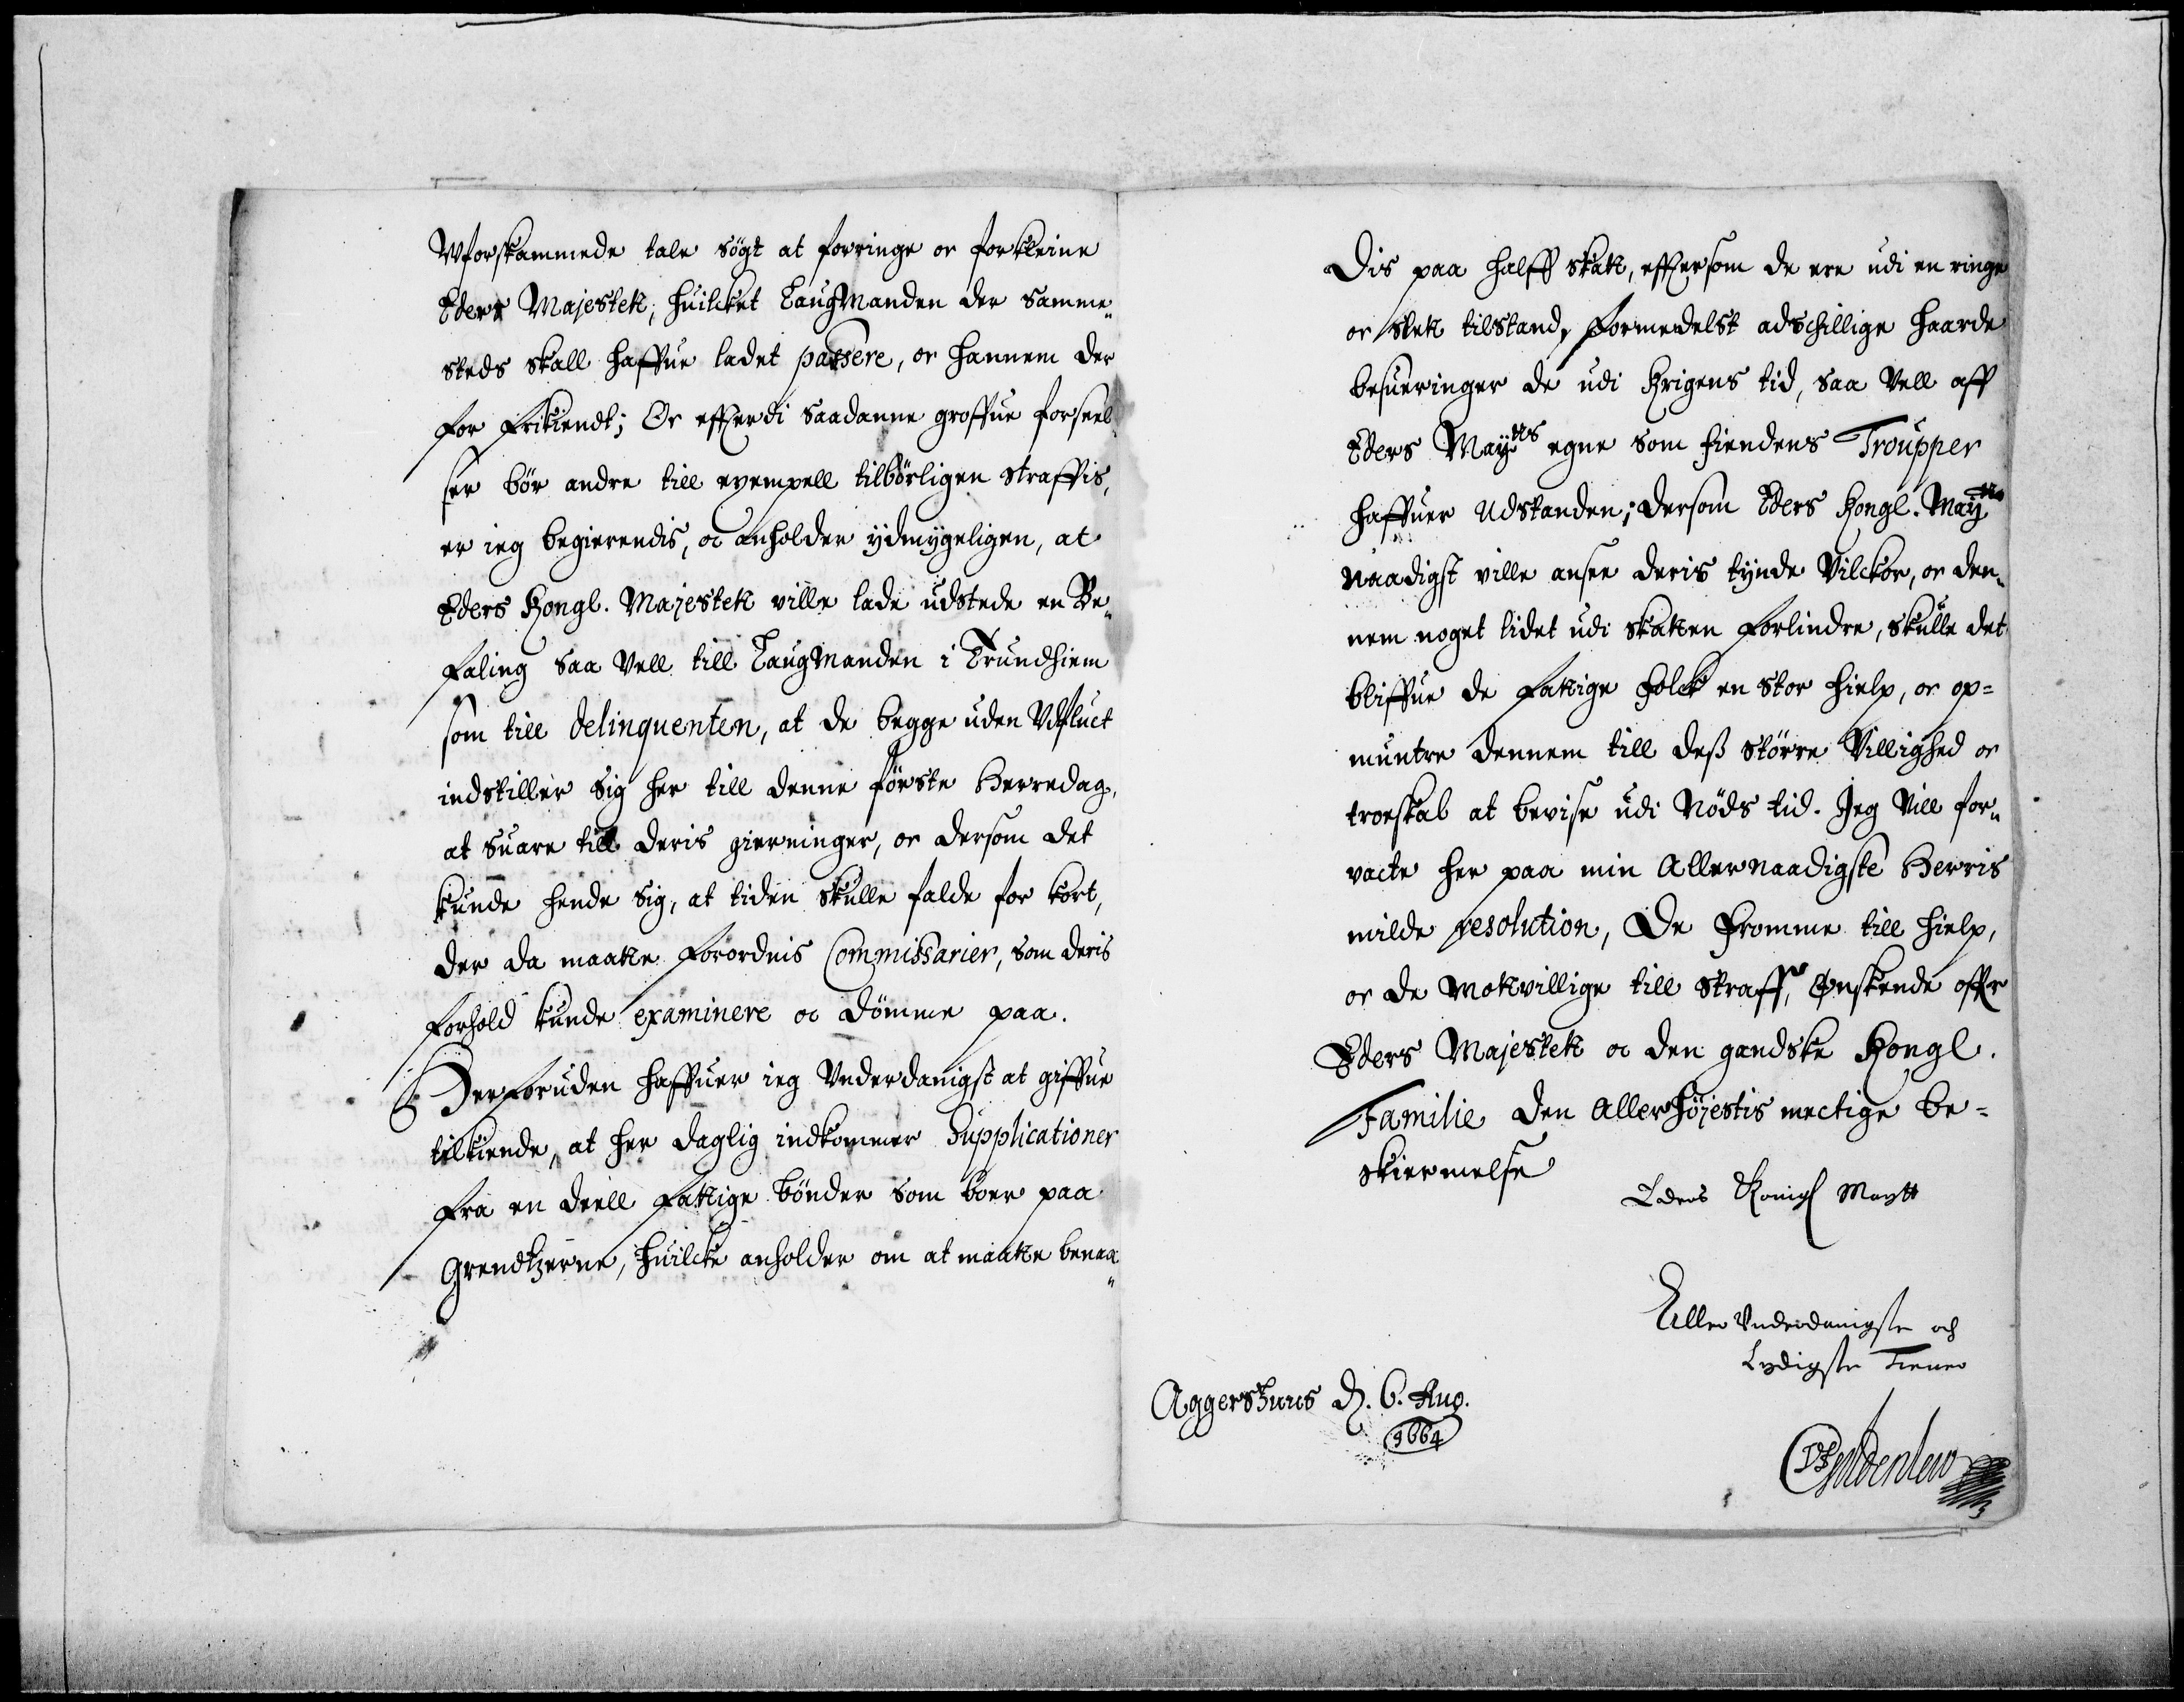 Wforskammede tale søgt at forringe oc forkleine
Eders Majestet, huilcket LaugManden der samme„
steds skall haffue ladet passere, oc hannem der
for frikiendt; Oc efterdi saadanne groffue forseel„
ser bör andre till exempell tilbörligen straffis,
er ieg begierendis, oc anholder ydmygeligen, at
Eders Kongl. Majestet ville lade udstede en Be„
faling saa vell till LaugManden i Trundhiem
som till delinquenten, at de begge uden Udfluct
indstiller sig her till denne förste Herredag,
at suare till deris gierninger, oc dersom det
kunde hende sig, at tiden skulle falde for kort,
der da maatte forordnis Commissarier, som deris
forhold kunde examinere oc dömme paa.
Der foruden haffuer ieg Vnderdanigst at giffue
tilkiende, at her daglig indkommer Supplicationer
fra en deell fattige bönder som boer paa
Grendtzerne, huilcke anholder om at maatte benaa„
dis paa halff skatt, eftersom de ere udi en ringe
oc slett tilstand, formedelst adschillige haarde
besueringer de udi Krigens tid, saa vell aff
Eders Mayts egne som fiendens Troupper
haffuer udstanden; dersom Eders Kongl. Maytt
naadigst ville ansee deris tynde Vilckor, oc den„
nem noget lidet udi skatten forlindre, skulle det
bliffue de fattige folck en stor hielp, oc op=
muntre dennem till deß större Villighed oc
troeskab at bevise udi Nöds tid. Jeg vill for„
vacte her paa min Allernaadigste Herris
milde resolution, De Fromme till hielp,
oc de Motvillige till straff, Ønskende offte
Eders Majestet oc den gandske Kongl.
Familie den Allerhöjestis mectige be=
skiermelse
Eders Konigl Maytt
Aller Vnderdanigste och
Lydigste Tiener
Aggershuus d. 6. Aug.
1664
UFGuldenlew